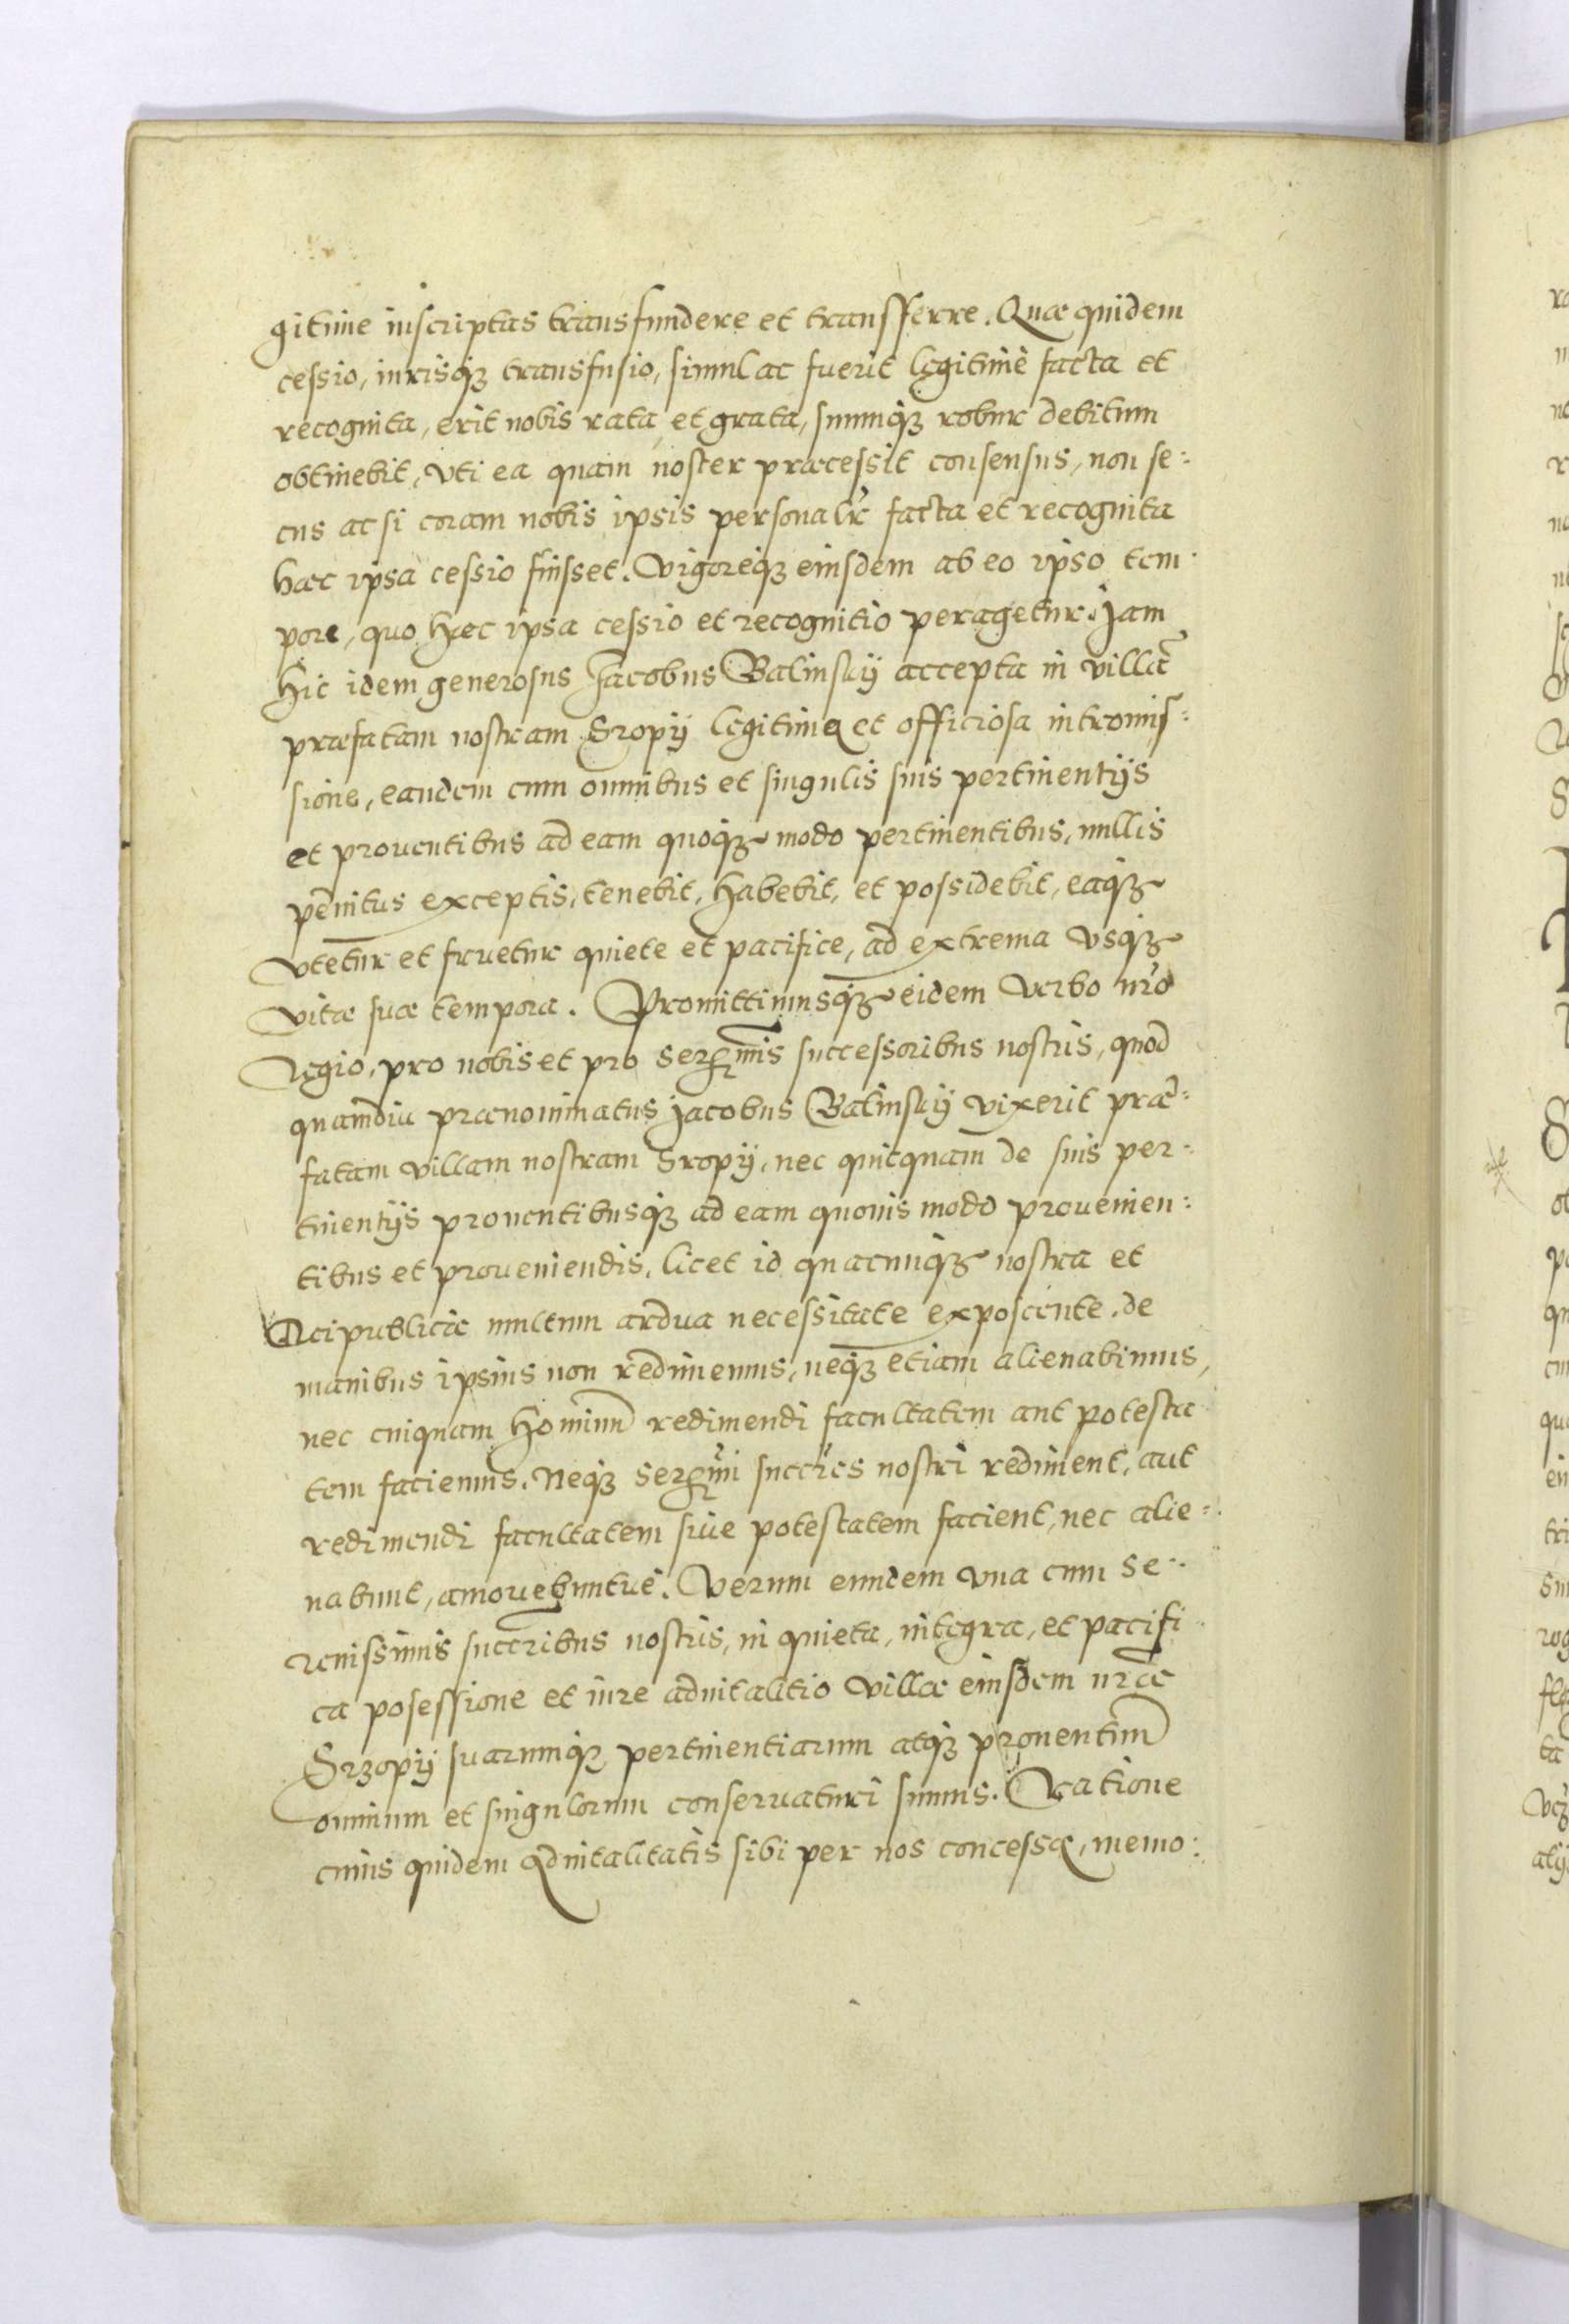 gitime inscriptas transfundere et transfferre. Quæ quidem
cessio, iurisq₃ transfusio, simul ac fuerit legitimè facta et
recognita, erit nobis rata, et grata, suumq₃ robur debitum
obtinebit, vti ea quam noster præcessit consensus, non se:
cus ac si coram nobis ipsis personalr̃ facta et recognita
hæc ipsa cessio fuisset. Vigoreq₃ eiusdem ab eo ipso tem:
pore, quo hæc ipsa cessio et recognitio peragetur. Jam
hic idem generosus Jacobus Balinskij accepta in villã
præfatam nostram Sropij legitima et officiosa intromis:
sione, eandem cum omnibus et singulis suis pertinentijs
et prouentibus ad eam quoq₃ modo pertinentibus, nullis
penitus exceptis, tenebit, habebit, et possidebit, eaq₃
vtetur et fruetur quiete et pacifice, ad extrema vsq₃
vitæ suæ tempora. Promittimusq₃ eidem verbo nr̃o
Regio, pro nobis et pro Serẽmis successoribus nostris, quod
quamdiu prænominatus Jacobus Balinskij vixerit præ:
fatam villam nostram Sropij, nec quicquam de suis per:
tinentijs prouentibusq₃ ad eam quouis modo prouenien:
tibus et proueniendis, licet id quacunq₃ nostra et
Reipublicæ multum ardua necessitate exposcente, de
manibus ipsius non redimemus, neq₃ etiam alienabimus,
nec cuiquam hominũ redimendi facultatem aut potesta
tem faciemus. Neq₃ Serẽmi succr̃es nostri rediment, aut
redimendi facultatem siue potestatem facient, nec alie:
nabunt, amouebuntuè. Verum eundem vna cum Se:
renissimis succr̃ibus nostris, in quieta, integra, et pacifi
ca posessione et iure aduitalitio villæ eiusdem nr̃æ
Srzopij suarumq₃ pertinentiarum atq₃ prouentuũ
omnium et singulorum conseruaturi sumus. Ratione
cuius quidem aduitalitatis sibi per nos concessæ, memo: